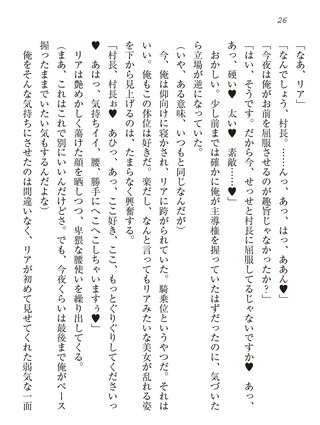 26
「なあ、リア」
「なんでしょう、村長。……んっ、あっ、はっ、ああん♥」
「今夜は俺がお前を屈服させるのが趣旨じゃなかったか?」
「はい、そうです。だから今、せっせと村長に屈服してるじゃないですか♥　あっ、
あっ、硬い♥　太い♥　素敵……♥」
おかしい。少し前までは確かに俺が主導権を握っていたはずだったのに、気づいた
ら立場が逆になっていた。
（いや、ある意味、いつもと同じなんだが）
今、俺は仰向けに寝かされ、リアに跨がられていた。騎乗位というやつだ。それは
いい。俺もこの体位は好きだ。楽だし、なんと言ってもリアみたいな美女が乱れる姿
を下から見上げるのは、たまらなく興奮する。
「村長、村長ぉ♥　あひっ、あっ、ここ好き、ここ、もっとぐりぐりしてくださいっ
♥　あはっ、気持ちイイ、腰、勝手にへこへこしちゃいますぅ♥」
リアは艶めかしく蕩けた顔を晒しつつ、卑猥な腰使いを繰り出してくる。
（まあ、これはこれで別にいいんだけどさ。でも、今夜くらいは最後まで俺がペース
握ったままでいたい気もするんだよな）
俺をそんな気持ちにさせたのは間違いなく、リアが初めて見せてくれた弱気な一面